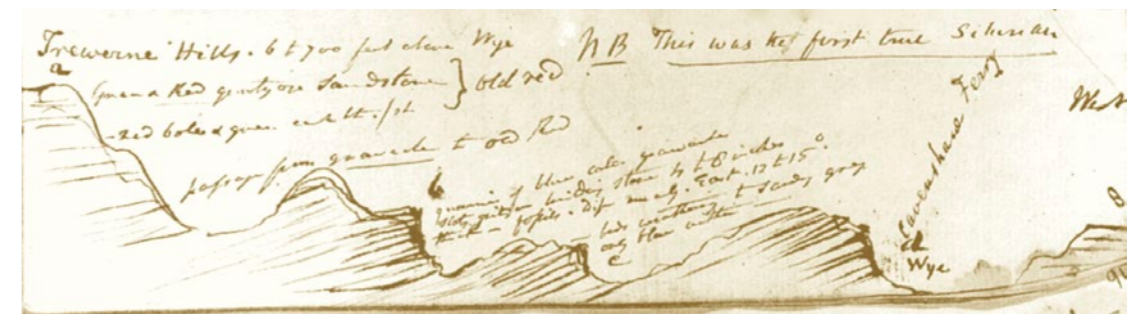 Trewerne Hills. 6 to 700 feet above Wye
NB This was the first true Silurian
a
Green & Red gritty ore Sandstone } Old red
- red boles & green
passage from grauwacke to old Red
West
Cavenshane Ferry
b
Quarries of blue calc. grauwacke
slaty gritty building stone by to 8 inches
thick - fossils. Dip East. 12 to 15°.
- beds weathering to sandy grey
only blue within
c
d
Wye